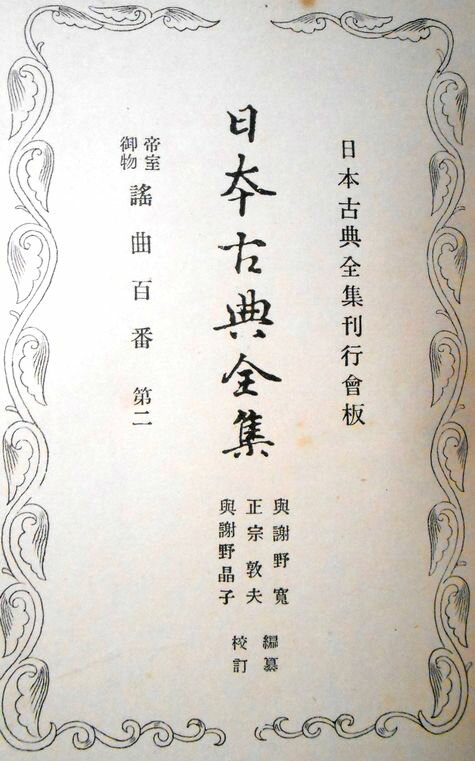 日本古典全集刊行會板
日本古典全集
與謝野寬
正宗敦夫
與謝野晶子
編纂
校訂
帝室
御物
謠曲百番 第二